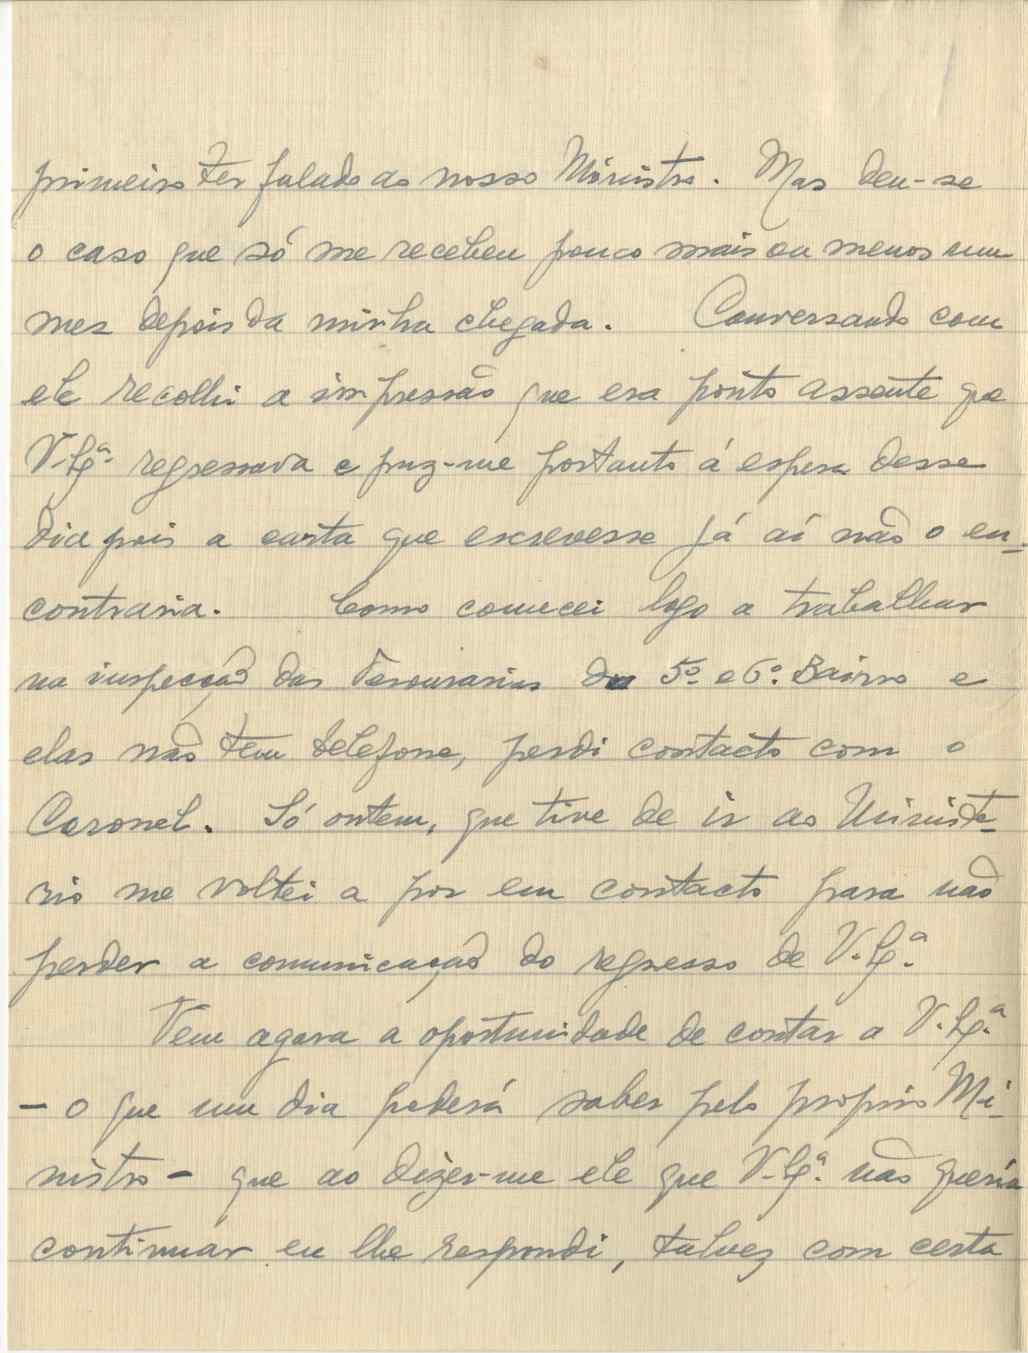 primeiro ter falado ao nosso Ministro. Mas deu-se
o caso que só me recebeu pouco mais ou menos um
mez depois da minha chegada. Conversando com
ele recolhi a impressão que era ponto assente que
V. Exª. regressava e puz-me portanto á espera desse
dia pois a carta que escrevesse já aí não o en-
contraria. Como comecei logo a trabalhar
na inspecção das Tesourarias do 5º. e 6º. Bairro e
elas não tem telefone, perdi contacto com o
Coronel. Só ontem, que tive de ir ao Ministe-
rio me voltei a por em contacto para não
perder a comunicação do regresso de V. Exª.
Vem agora a oportunidade de contar a V. Exª.
- o que um dia poderá saber pelo proprio Mi-
nistro - que ao dizer-me ele que V. Exª. não queria
continuar eu lhe respondi, talvez com certa